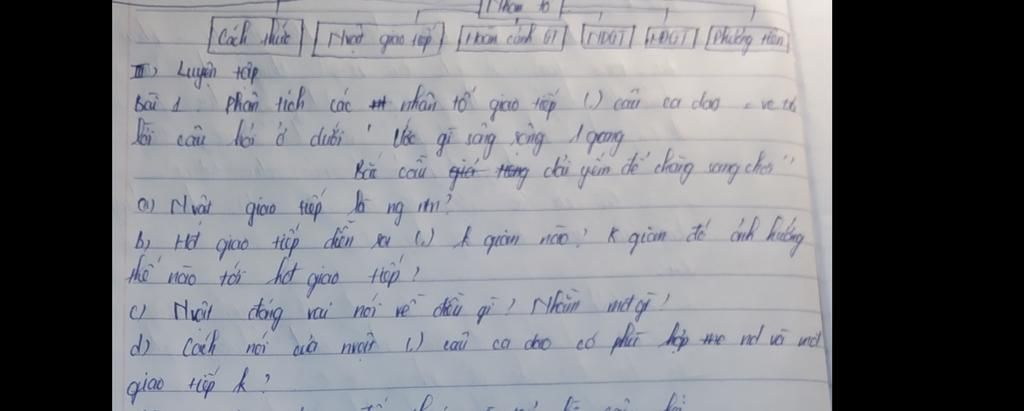 Nhân tố
Cách thức Nvật giao tiếp Hoàn cảnh GT NDGT MĐGT Phương tiện
III) Luyện tập
Bài 1. Phân tích các nhân tố giao tiếp (.) câu ca dao
lời câu hỏi ở dưới " Ước gì sông rộng 1 gang
Bắc cầu dải yếm để chàng sang chơi"
a) Nvật giao tiếp là ng ntn?
b) Hđ giao tiếp diễn ra (.) k gian nào? K gian đó ảnh hưởng
thế nào tới hđ giao tiếp?
c) Nvật đóng vai nói về điều gì? Nhằm mđ gì?
d) Cách nói của nvật (.) câu ca dao có phù hợp nd và mđ
giao tiếp k?